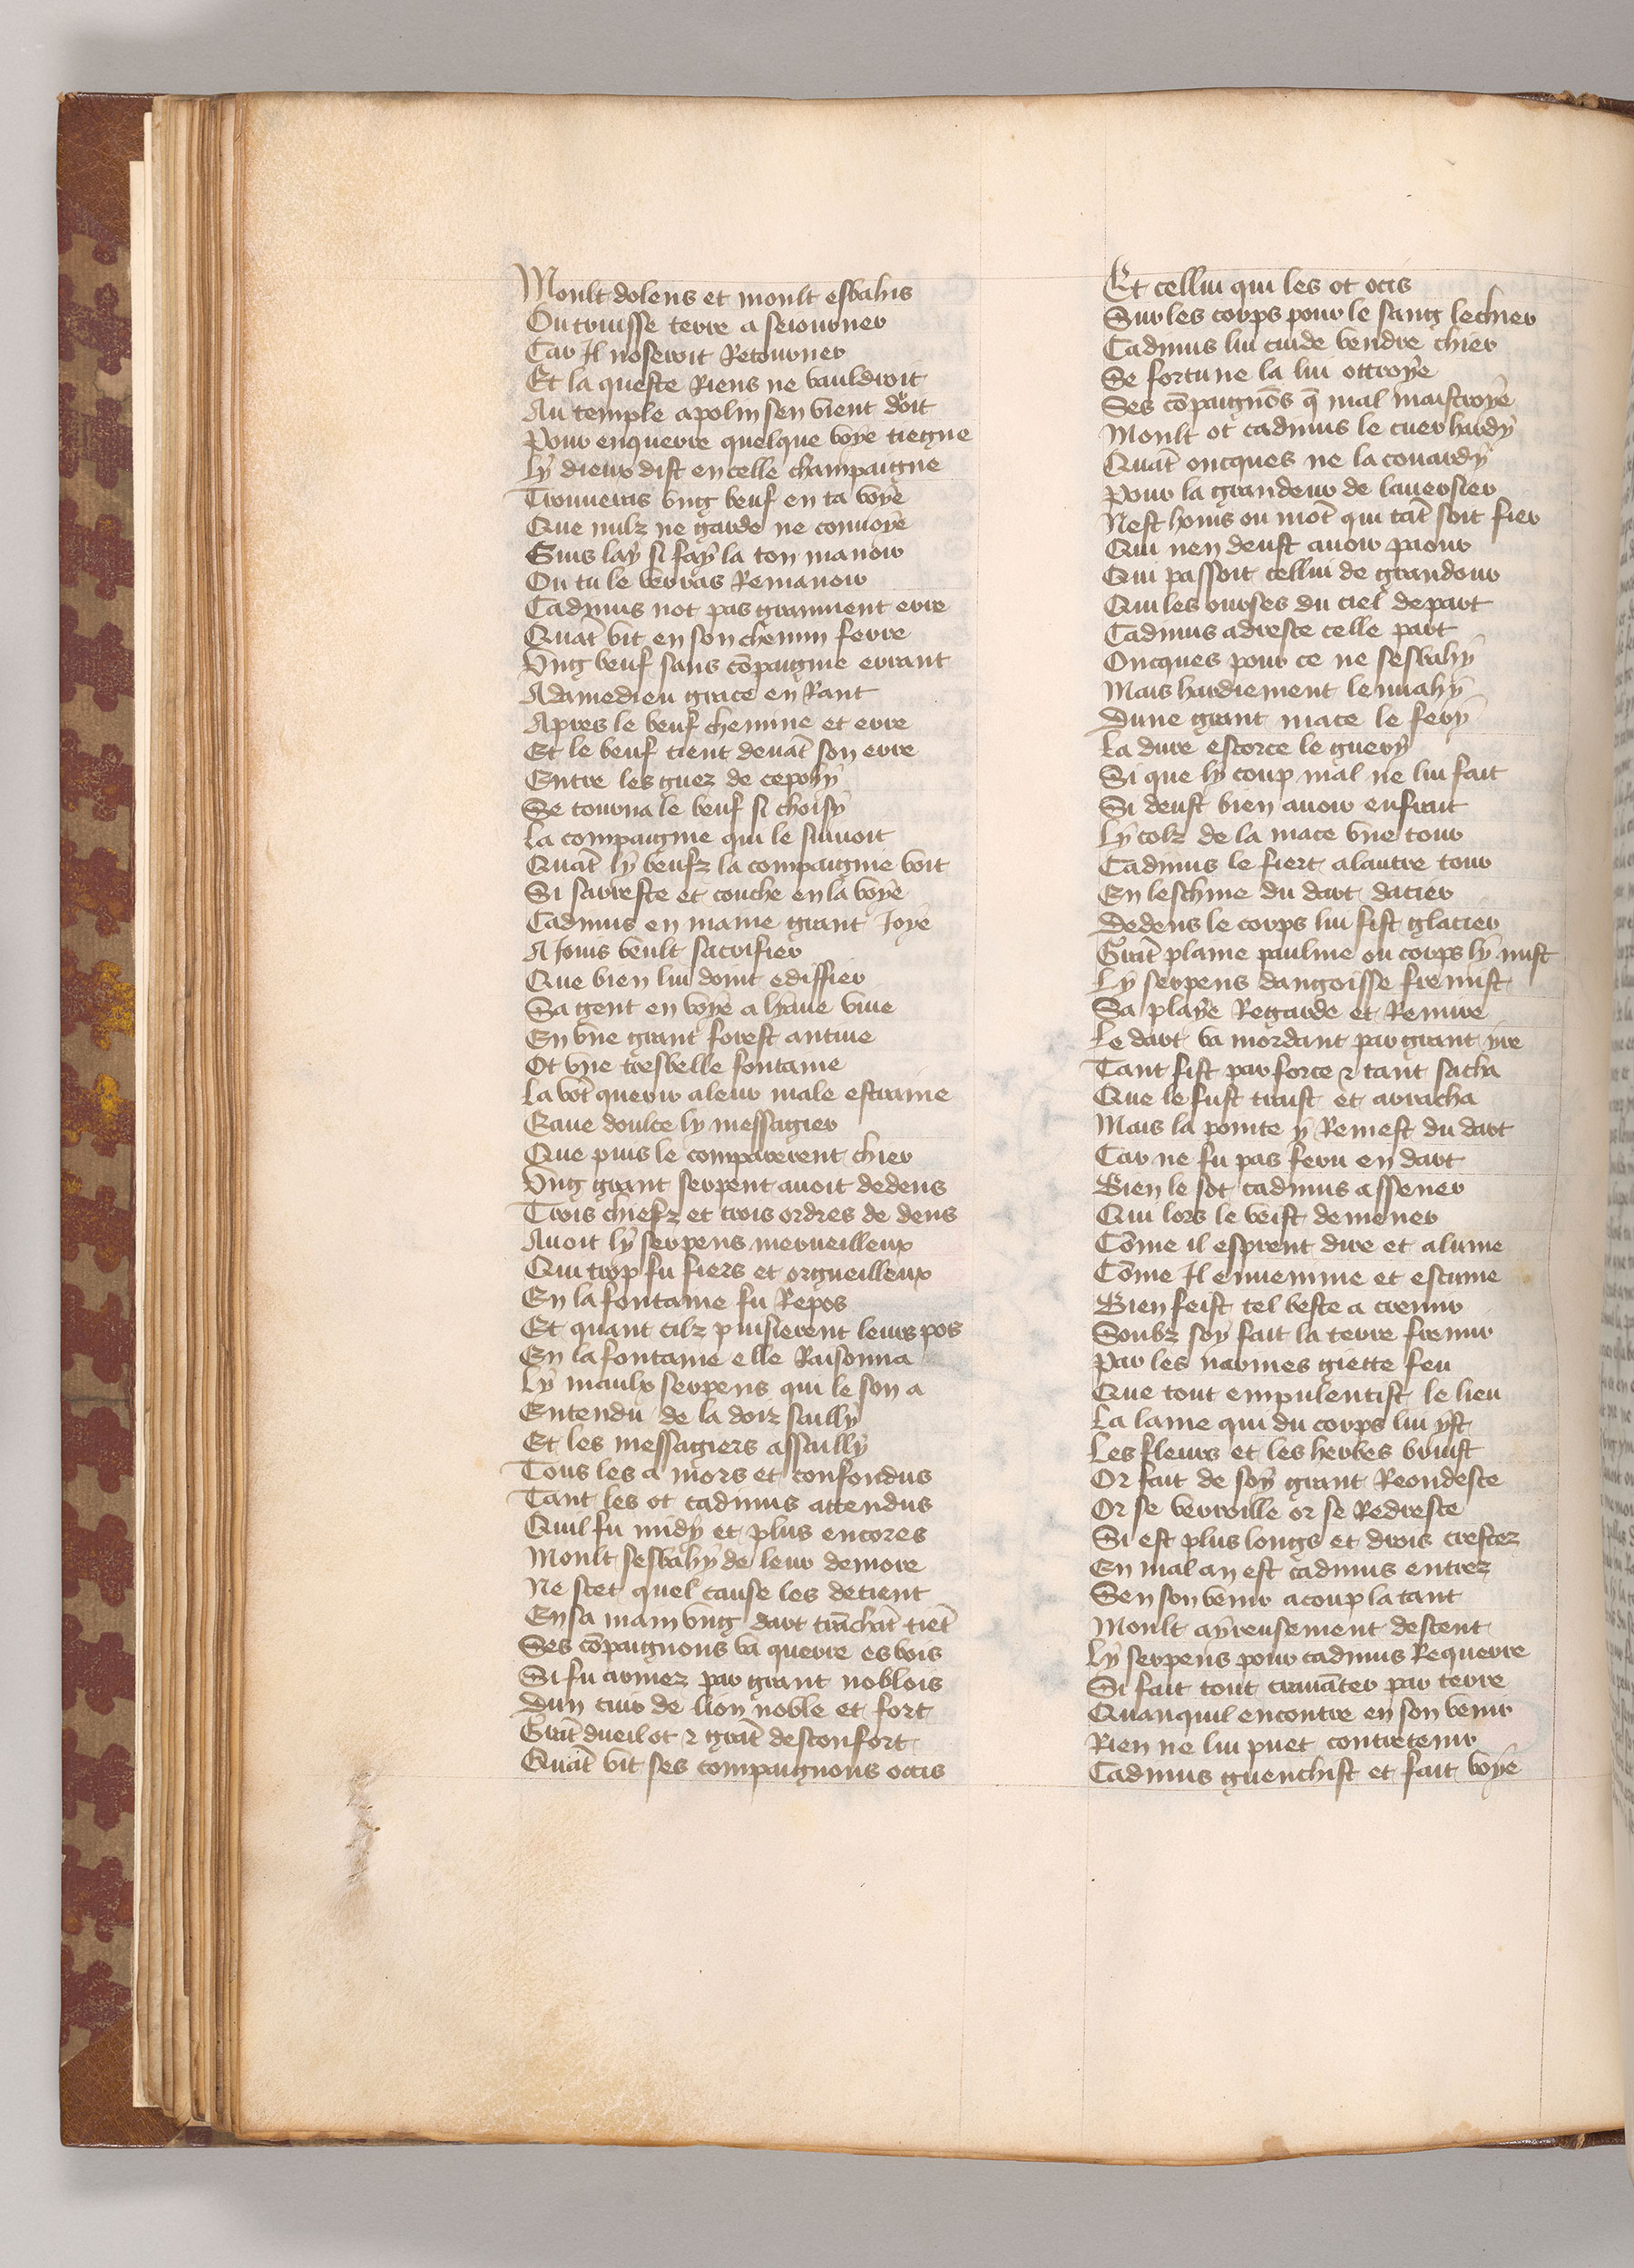 Moult dolens et moult esbahis
Ou truisse terre a seiourner
Car Il noseroit Retourner
Et la queste Riens ne vauldroit
Au temple apolin sen vient droit
Pour enquerre quelque voye tiegne
Ly dieux dist en celle champaigne
Trouueras vng beuf en ta voye
Que nulz ne garde ne conuoye
Suis lay si fay la ton manoir
Ou tu le verras Remanoir
Cadmus not pas gramment erre
Quāt vit en son chemin ferre
Vng beuf sans cōpaignie errant
A damedieu grace en Rant
Apres le beuf chemine et erre
Et le beuf tient deuāt son erre
Entre les guez de cepoyy
Se tourna le beuf si choisy
La compaignie qui le suiuoit
Quāt ly beufz la compaignie voit
Si sarreste et couche en la voye
Cadmus en maine grant Joye
A Jouis veult sacrifier
Que bien lui doint ediffier
Sa gent en voye a lyaue viue
En vne grant forest antiue
Ot vne tresbelle fontaine
La vōt querir a leur male estraine
Eaue doulce ly messagier
Que puis le comparerent chier
Vng grant serpent auoit dedens
Trois chiefz et trois ordres de dens
Auoit ly serpens merueilleux
Qui trop fu fiers et orgueilleux
En la fontaine fu Repos
Et quant cilz puisierent leurs pos
En la fontaine elle Raisonna
Ly maulx serpens qui le son a
Entendu de la doiz sailly
Et les messagiers assailly
Tous les a mors et confondus
Tant les ot cadmus attendus
Quil fu midy et plus encores
Moult sesbahy de leur demore
Ne scet quel cause les detient
En sa main vng dart trāchāt tiēt
Ses cōpaignons va querre es bois
Si fu armez par grant noblois
Dun cuir de lion noble et fort
Grāt dueil ot ⁊ grāt desconfort
Quāt vit ses compaignons occis
Et cellui qui les ot ocis
Sur les corps pour le sang lechier
Cadmus lui cuide vendre chier
Se fortune la lui ottroye
Ses cōpaignōs q̄ mal maistroye
Moult ot cadmus le cuer hardy
Quāt oncques ne la couardy
Pour la grandeur de lauersier
Nest homs ou mōt qui tāt soit fier
Qui nen deust auoir paour
Qui passoit cellui de grandour
Qui les ourses du ciel depart
Cadmus adreste celle part
Oncques pour ce ne sesbahy
Mais hardiement le nuahy
Dune grant mace le fery
La dure escorce le guery
Si que ly coup mal ne lui fait
Si deust bien auoir enfrait
Ly colz de la mace vne tour
Cadmus le fiert alautre tour
En leschine du dart dacier
Dedens le corps lui fist glacier
Grāt plaine paulme ou corps ly mist
Ly serpens dangoisse fremist
Sa playe Regarde et Remire
Le dart va mordant par grant yre
Tant fist par force ⁊ tant sacha
Que le fust traist et arracha
Mais la pointe y Remest du dart
Car ne fu pas feru en dart
Bien le sot cadmus assener
Qui lors le veist demener
Cōme il esprent dire et alume
Cōme Il enuenime et escume
Bien feist tel beste a cremir
Soubz soy fait la terre fremir
Par les narines giette feu
Que tout empulentist le lieu
La laine qui du corps lui yst
Les fleurs et les herbes bruist
Or fait de soy grant Reondesce
Or se verroille or se Redresce
Si est plus longs et drois crestez
En mal an est cadmus entrez
Sen son venir acoup latant
Moult ayreusement descent
Ly serpens pour cadmus Requerre
Si fait tout crauāter par terre
Quanquil encontre en son venir
Rien ne lui puet contretenir
Cadmus guenchist et fait voye